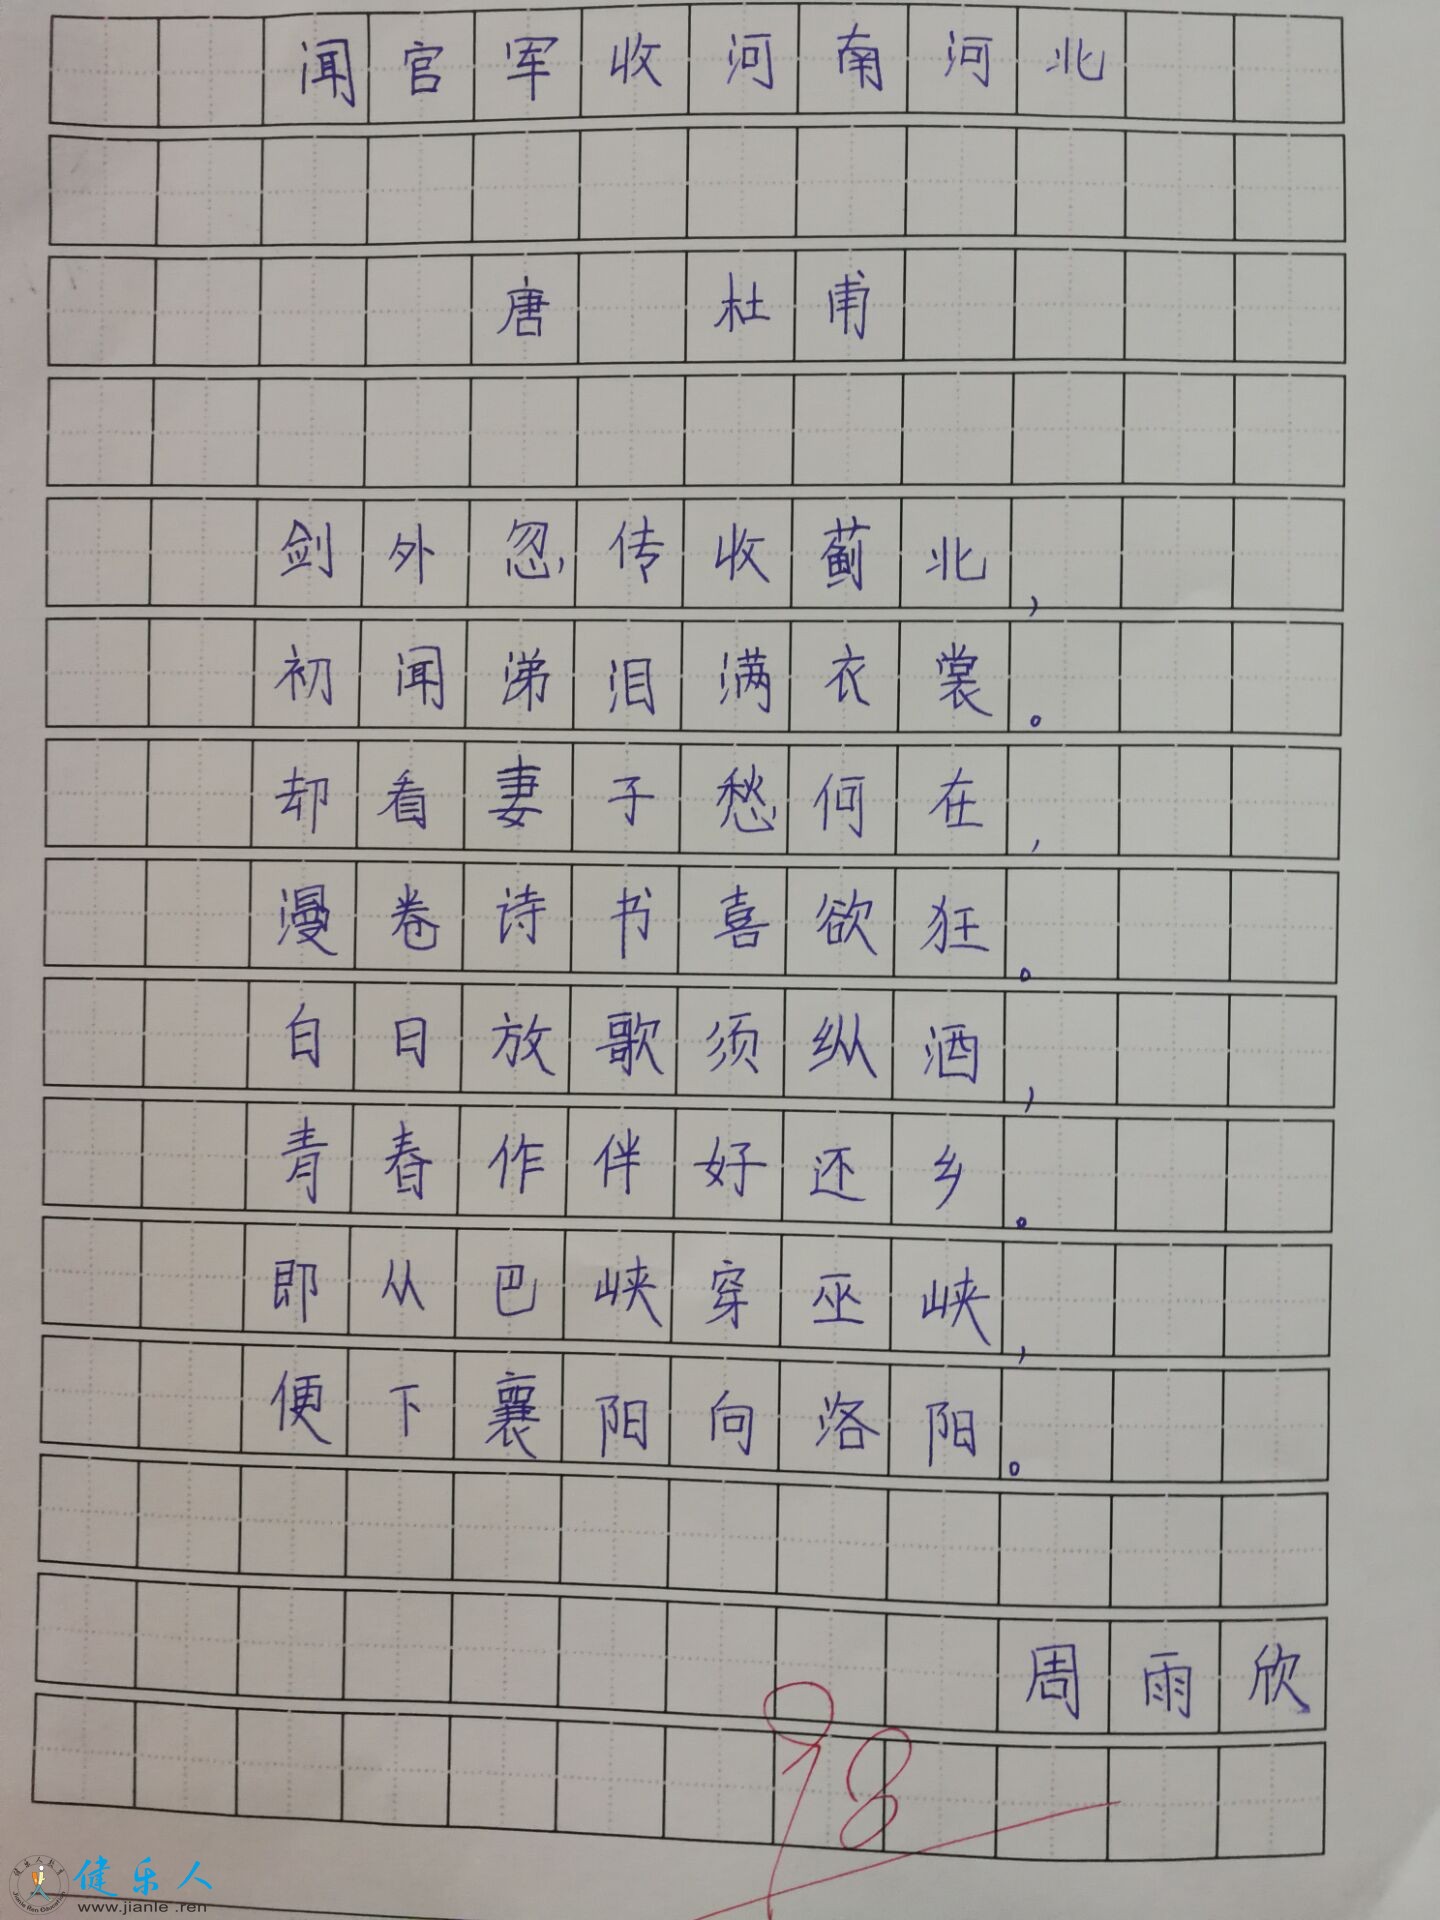 闻官军收河南河北
唐 杜甫
剑外忽传收蓟北,
初闻涕泪满衣裳。
却看妻子愁何在,
漫卷诗书喜欲狂。
白日放歌须纵酒,
青春作伴好还乡。
即从巴峡穿巫峡,
便下襄阳向洛阳。
周雨欣
98
健乐人
www.jianle.ren